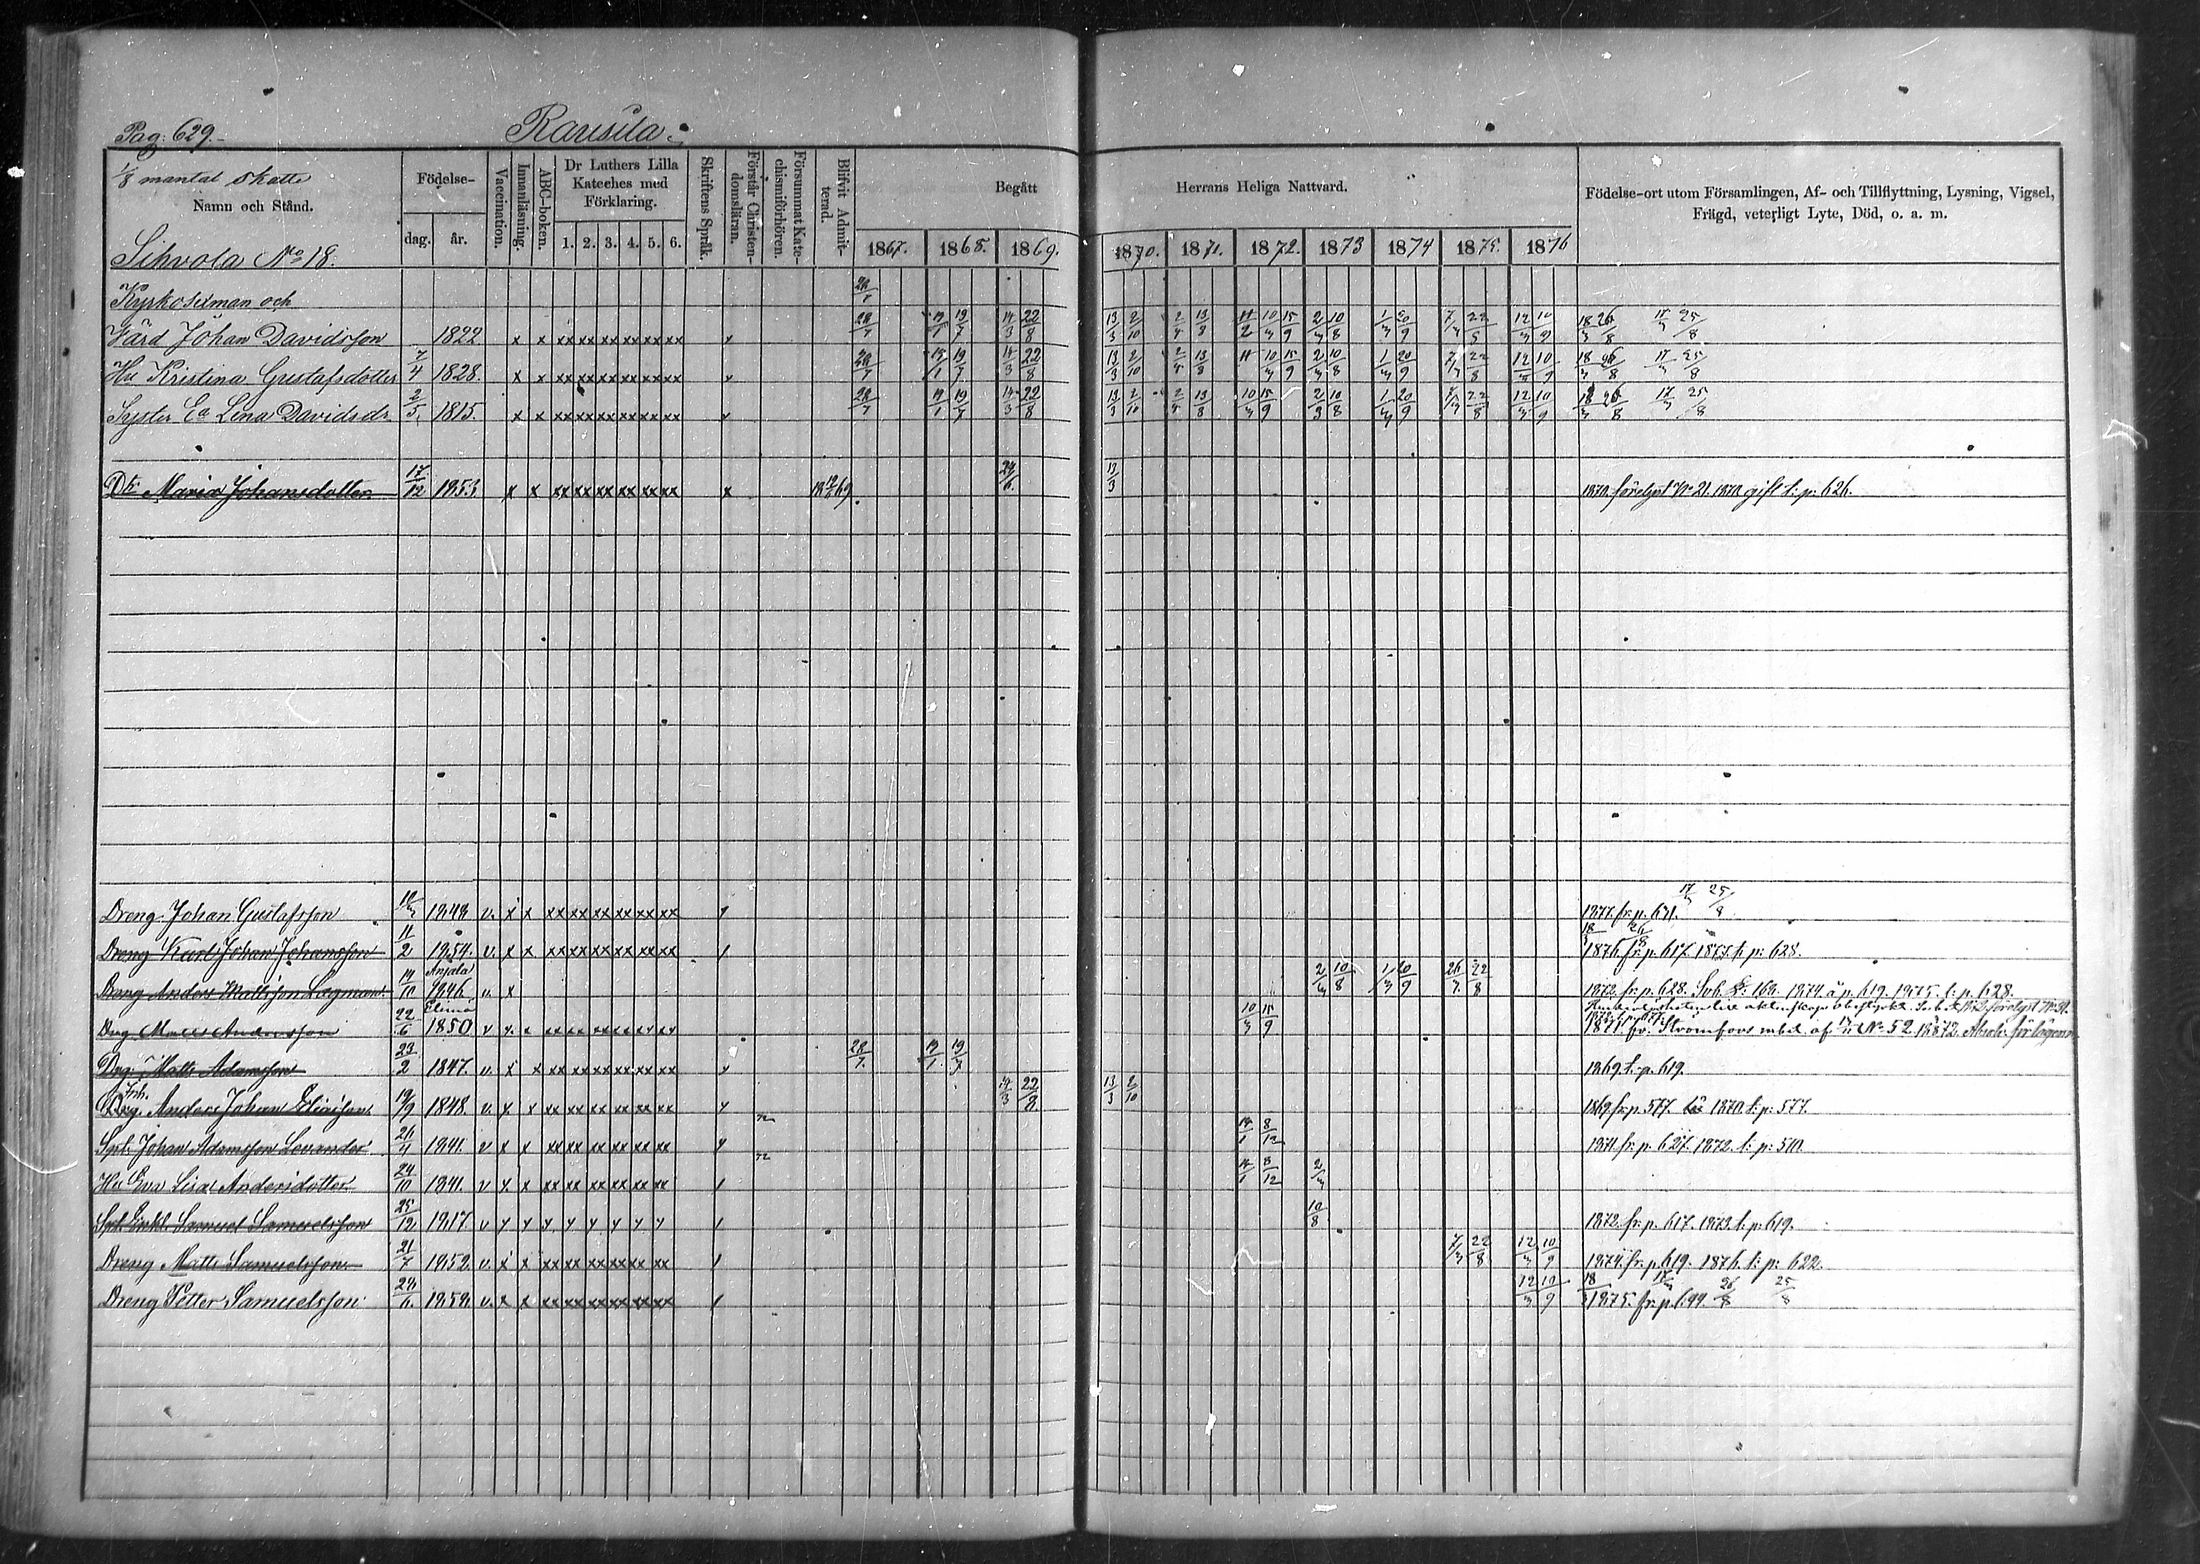 Pag. 629.
Rausila.
1/8 mantal skatte
Namn och Stånd.
Födelse-
dag. år.
Vaccination.
Innanläsning.
ABC-boken.
Dr Luthers Lilla Kateches med Förklaring.
1. 2. 3. 4. 5. 6.
Skriftens Språk.
Förstår Christendomsläran.
Försummat Katechismiförhören.
Blifvit Admitterad.
Begått Herrans Heliga Nattvard.
1867. 1868. 1869. 1870. 1871. 1872. 1873 1874 1875. 1876
Födelse-ort utom Församlingen, Af- och Tillflyttning, Lysning, Vigsel,
Frägd, veterligt Lyte, Död, o. a. m.
Sihvola No 18.
Kyrkosexman och 28/7
Värd Johan Davidsson 1822 x x xx xx xx xx xx xx x 28/7 19/1 19/7 14/3 22/8 13/3 2/10 2/4 13/8 10/3 15/9 2/3 10/8 1/3 20/9 12/3 10/9 18/3 26/8 17/3 25/8
Hu Kristina Gustafsdotter 7/4 1828. x x xx xx xx xx xx xx x 28/7 19/1 19/7 14/3 22/8 13/3 2/10 2/4 13/8 10/3 15/9 2/3 10/8 1/3 20/9 7/3 22/8 12/3 10/9 18/3 26/8 17/3 25/8
Syster Ea Lena Davidsdr 2/5 1815. x x xx xx xx xx xx xx x 28/7 19/1 19/7 14/3 22/8 13/3 2/10 2/4 13/8 10/3 15/9 2/3 10/8 1/3 20/9 7/3 22/8 12/3 10/9 18/3 26/8 17/3 25/8
Dr Maria Johansdotter 17/12 1853 x x xx xx xx xx xx xx x 24/6 13/3 1870. förelyst No 21. 1870 gift t: p: 626.
Dreng Johan Gustafsson 1848 v. x x xx xx xx xx xx xx 1877. fr. p. 631. 17/3 25/8
Dreng Karl Johan Johansson 11/2 1854. v. x x xx xx xx xx xx xx 18/3 26/8 1876. fr. p. 617. 1877. t: p: 628.
Dreng Anders Mattsson Lagman 14/10 Anjala 1846 v. x 2/3 10/8 1/3 20/9 26/7 22/8 1872. fr. p. 628. 1874. å p. 619. 1875. t: p. 628.
Drg Matts Andersson 22/6 Elimä 1850 v x. x xx xx xx xx xx xx 10/3 15/9 1871. fr. Strömfors No 52. 1872.
Drg. Matts Adamsson 23/2 1847. v. x x xx xx xx xx xx xx 28/7. 19/1 19/7 1869. t: p. 619.
Drg. Anders Johan Eliasson 19/9 1848. v. x x xx xx xx xx xx xx 14/3 22/8 13/3 2/10 1869. fr. p. 577. 1870. t: p: 577.
Spt. Johan Adamsson Levander 26/4 1841. v x x xx xx xx xx xx xx 72 14/1 8/12 1871. fr. p. 627. 1872. t: p: 510.
Hu Eva Lisa Andersdotter 24/10 1841. v x. x xx xx xx xx xx xx 72 14/1 8/12 2/3
Spt. Enkl. Samuel Samuelsson 25/12 1817. v y y y y y y y y 10/8 1872. fr. p. 617. 1873. t: p: 619.
Dreng Matts Samuelsson 21/7 1852. v. x x xx xx xx xx xx xx 7/3 22/8 12/3 10/9 1874. fr. p. 619. 1876. t: p: 622.
Dreng Petter Samuelsson 28/6. 1858. v. x x xx xx xx xx xx xx 12/3 10/9 18/3 1875. fr. p. 17/3 26/8 25/8